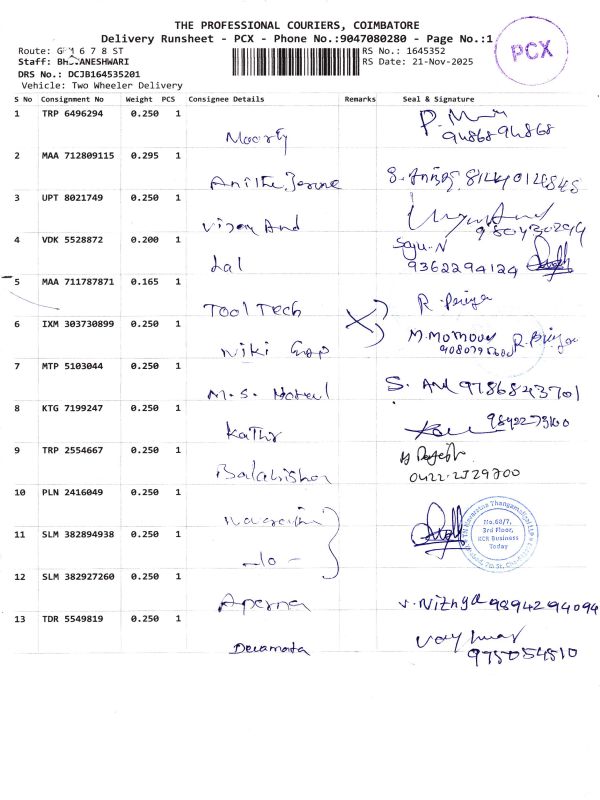 THE PROFESSIONAL COURIERS, COIMBATORE
Delivery Runsheet - PCX - Phone No.:9047080280 - Page No.:1
PCX
Route: 6 7 8 ST
RS No.: 1645352
Staff: BHUVANESHWARI
RS Date: 21-Nov-2025
DRS No.: DCJB164535201
Vehicle: Two Wheeler Delivery
S No Consignment No Weight PCS Consignee Details Remarks Seal & Signature
1 TRP 6496294 0.250 1
Moorty
P.
9486894868
2 MAA 712809115 0.295 1
3 UPT 8021749 0.250 1
Vijay And
4 VDK 5528872 0.200 1
Lal
Saju.N
9362294124
5 MAA 711787871 0.165 1
Tool Tech
R. Priya
6 IXM 303730899 0.250 1
Niki
R. Priya
7 MTP 5103044 0.250 1
M.S. Hotel
S. 9786843701
8 KTG 7199247 0.250 1
Kathir
9 TRP 2554667 0.250 1
10 PLN 2416049 0.250 1
No.68/7,
3rd Floor,
KCR Business
Today
11 SLM 382894938 0.250 1
-do-
12 SLM 382927260 0.250 1
Aperna
V. Nithya 9894294094
13 TDR 5549819 0.250 1
9750054510